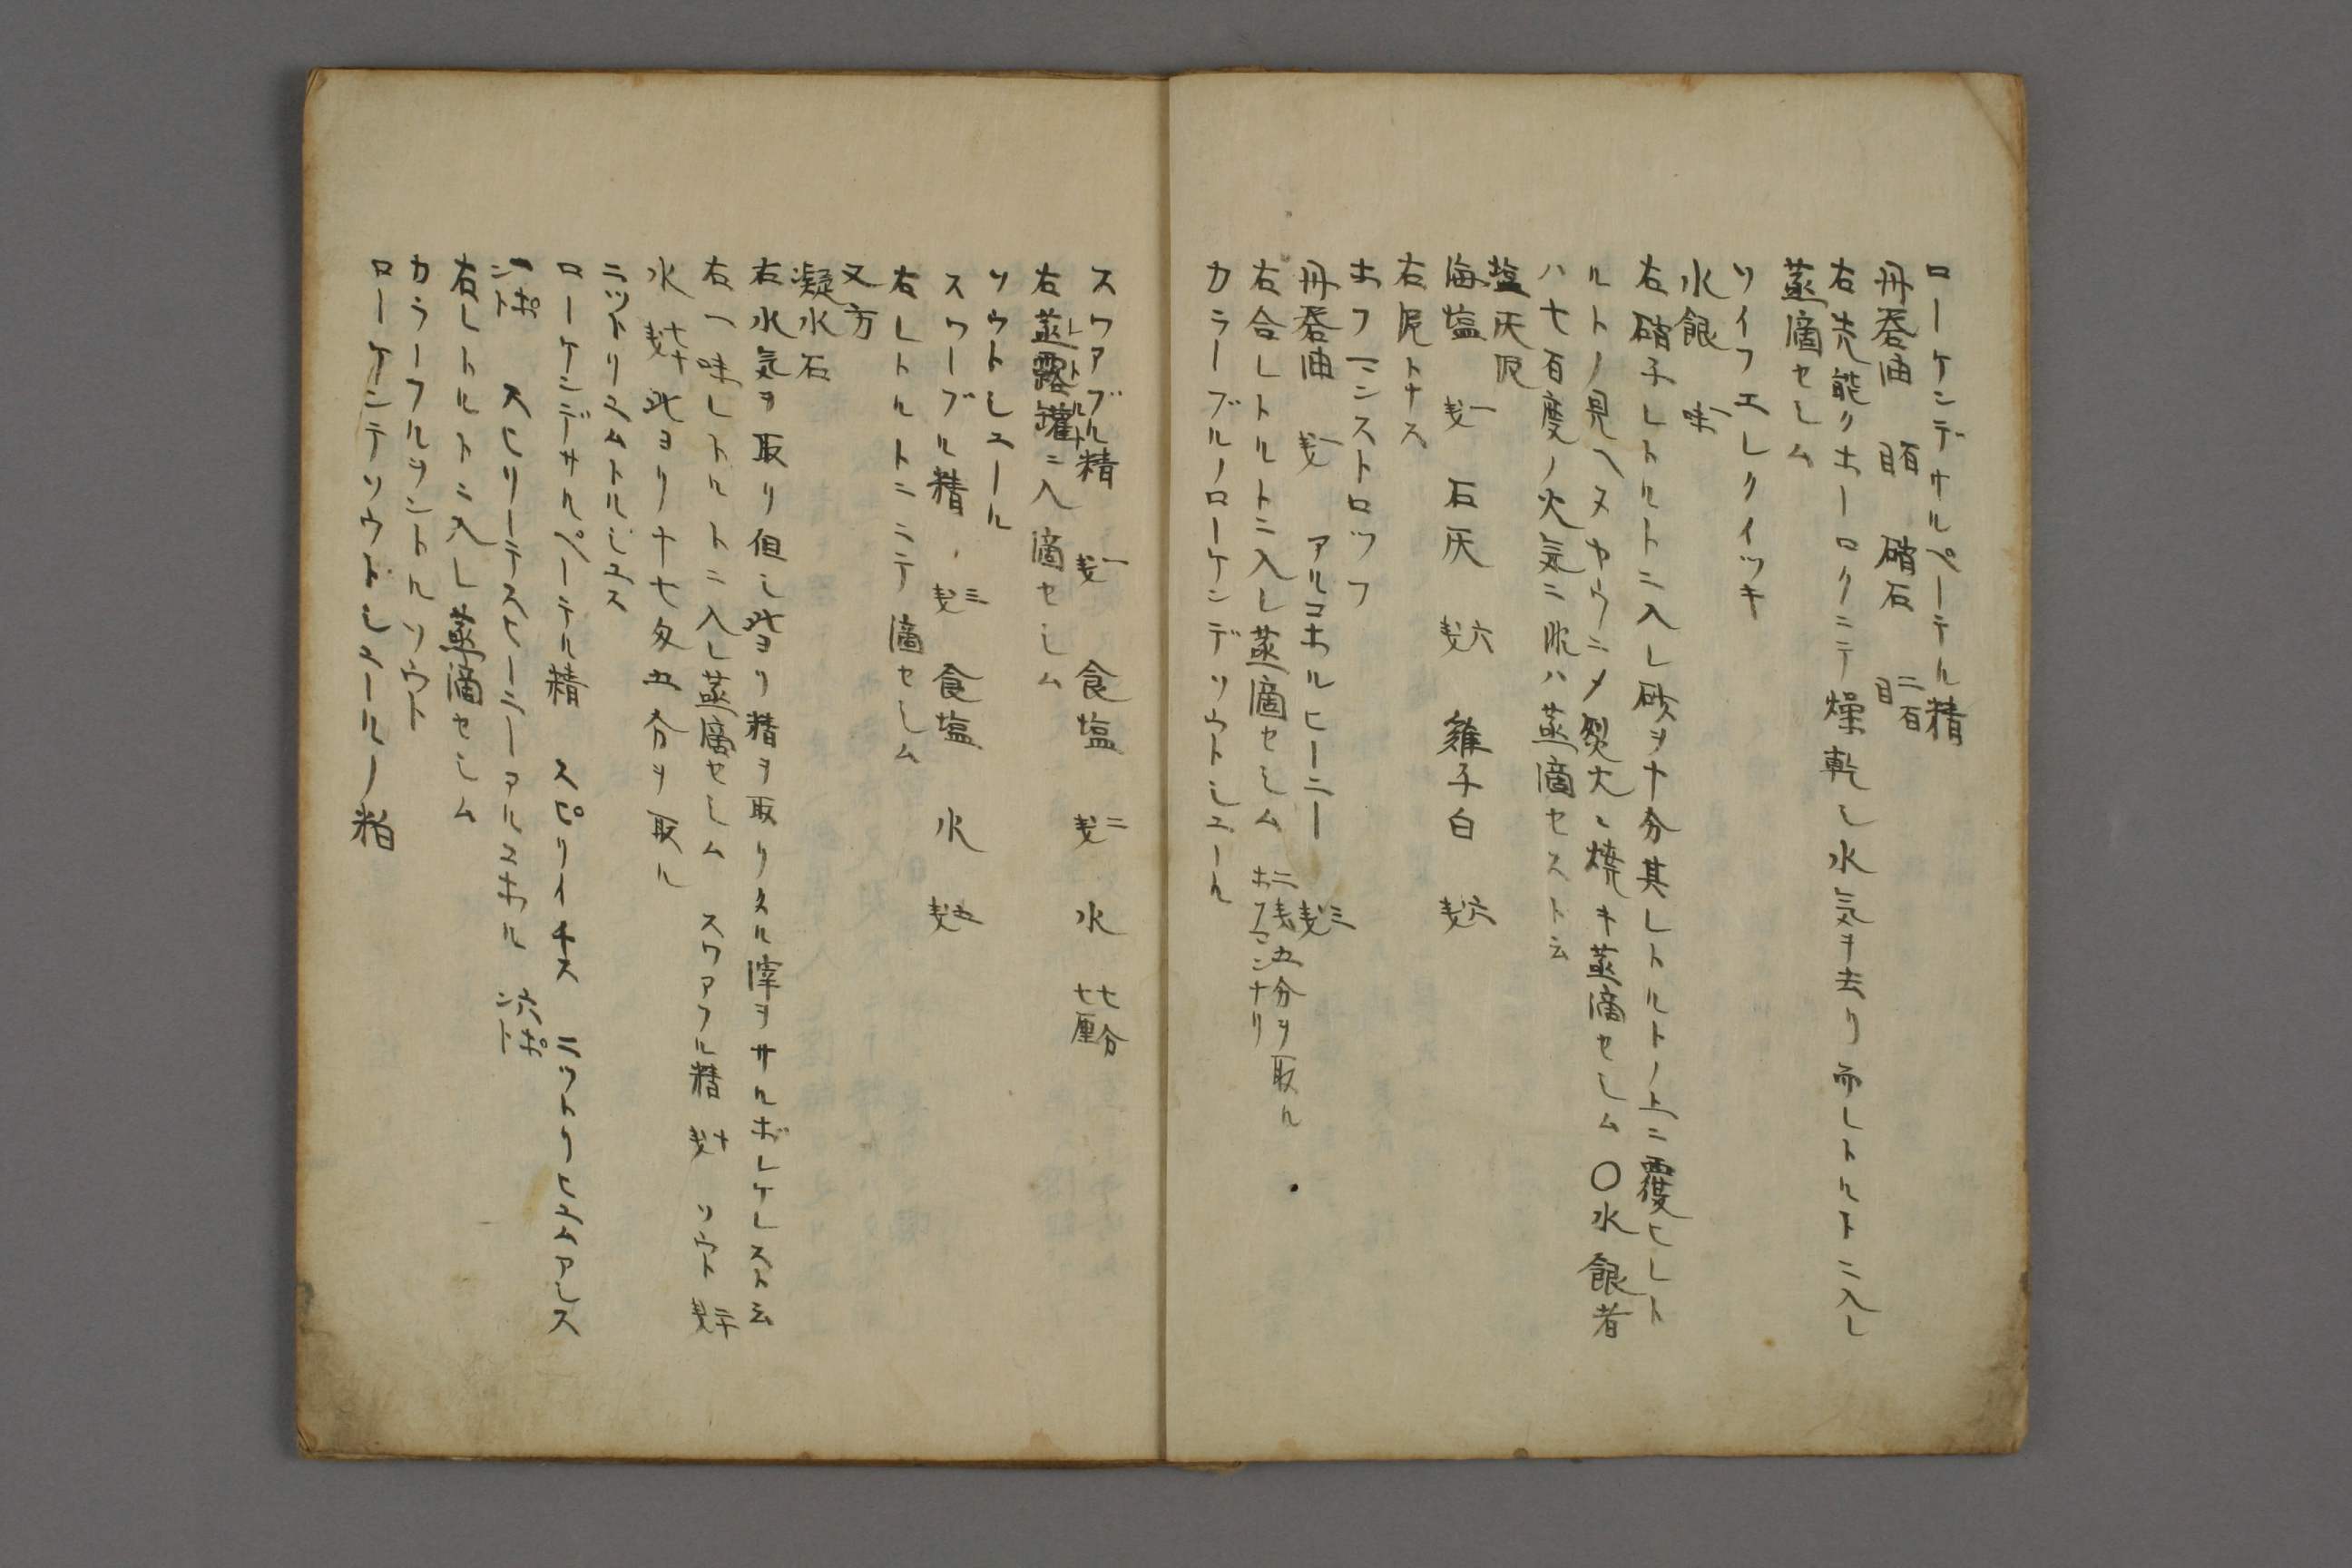 ローケンデサルペーテル精
丹礬油 百目 硝石 二百目
右先能クホーロクニテ燥乾シ水気ヲ去リ而レトルトニ入レ
蒸滴セシム
ソイフエレクイッキ
水銀 一味
右硝子レトルトニ入レ砂ヲ十分其レトルトノ上ニ覆ヒレト
ルトノ見ヘヌヤウニメ烈火ニ焼キ蒸滴セシム 〇水銀者
ハ七百度ノ火気ニ非ハ蒸滴セスト云
塩灰泥
海塩 一戔 石灰 六戔 雞子白 六戔
右泥トナス
ホフマンストロツフ
丹礬油 一戔 アルコホルヒーニー 三戔
右合レトルトニ入レ蒸滴セシム 二戔五分ヲ取ル ホフマンナリ
カラーブルノローケンデソウトシュール
スワアブル精 一戔 食塩 二戔 水 七分七厘
右蒸露罐ニ入滴セシム
レトルト
ソウトシュール
スワーブル精 三戔 食塩 水 五戔
右レトルトニテ滴セシム
又方
凝水石
右水気ヲ取リ但シ此ヨリ精ヲ取リタル滓ヲサルボレケレスト云
右一味レトルトニ入レ蒸滴セシム スワアフル精 十戔 ソウト 二十戔
水 七十戔 此ヨリ十七匁五分ヲ取ル
ニツトリユムトルシユス
ローケンデサルペーテル精 スピリイチス ニツトリヒユムアシス
一ポント スヒリーテスヒーニーアルコホル 六ポント
右レトルトニ入レ蒸滴セシム
カラーフルヲントルソウト
ローケンテソウトシユールノ粕